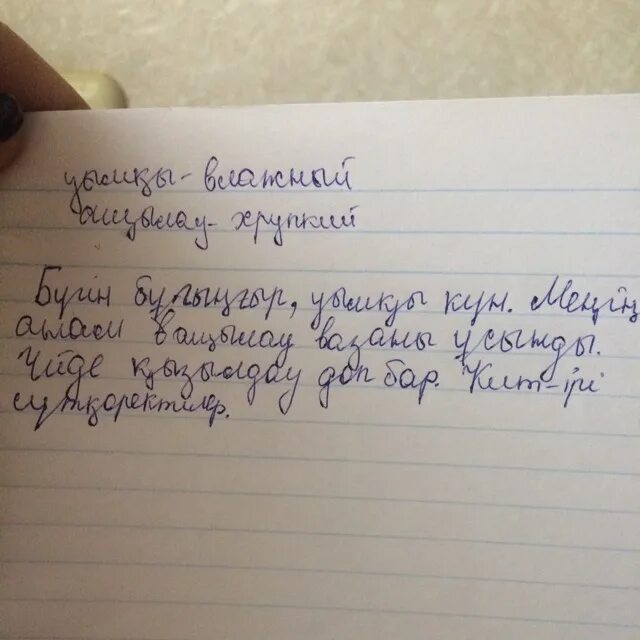 уымқы - влажный
ащылау - хрупкий
Бүгін бұлыңғыр, уымқы күн. Меңің
апам ващылау вазаны ұсынды.
Үйде қызылдау доп бар. Кит - ірі
сүтқоректілер.